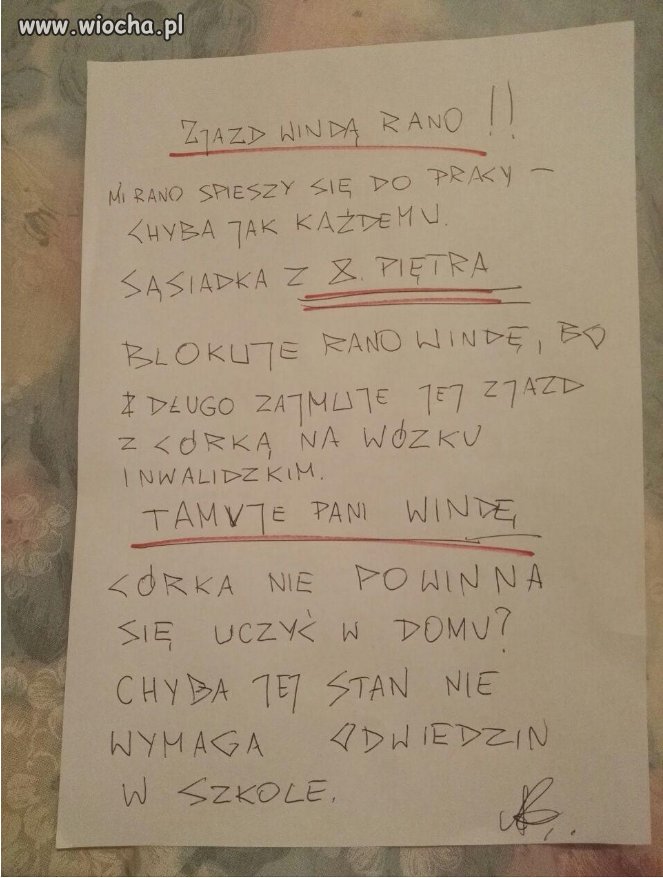 www.wiocha.pl
ZJAZD WINDĄ RANO !!
MI RANO SPIESZY SIĘ DO PRACY –
CHYBA JAK KAŻDEMU.
SĄSIADKA Z 8. PIĘTRA
BLOKUJE RANO WINDĘ, BO
DŁUGO ZAJMUJE JEJ ZJAZD
Z CÓRKĄ NA WÓZKU
INWALIDZKIM.
TAMUJE PANI WINDĘ,
CÓRKA NIE POWINNA
SIĘ UCZYĆ W DOMU?
CHYBA JEJ STAN NIE
WYMAGA ODWIEDZIN
W SZKOLE.